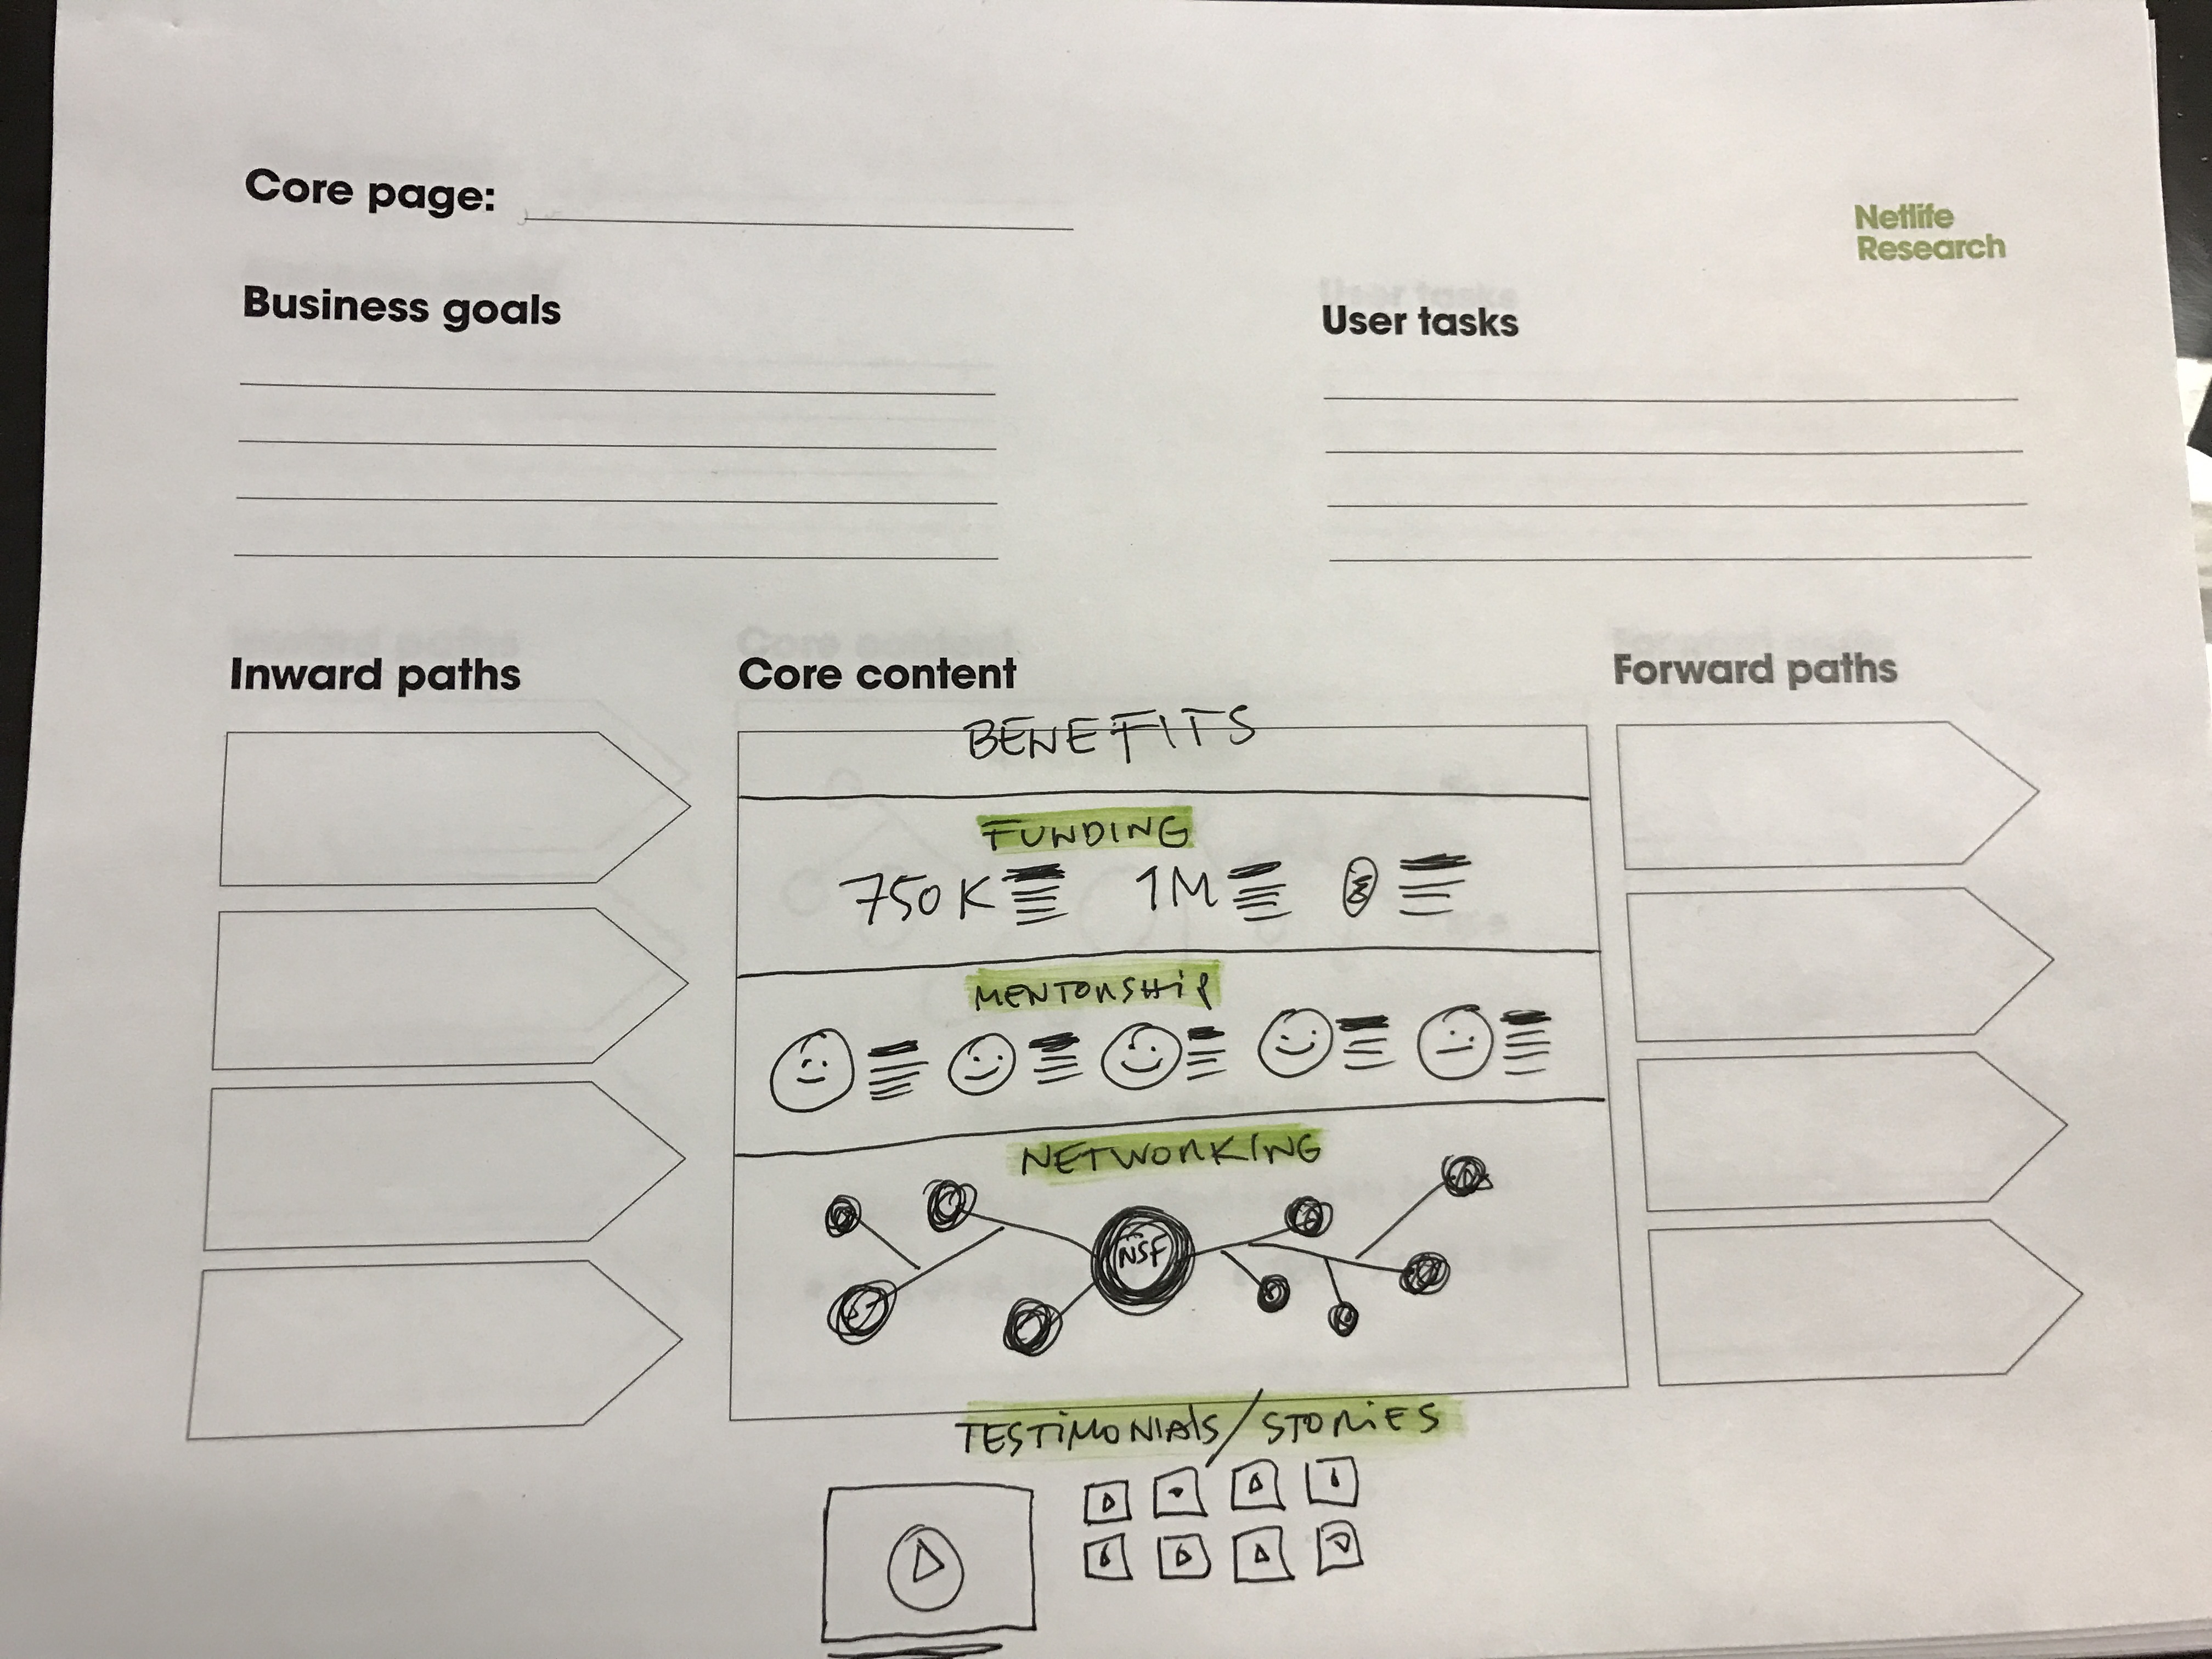 Core page:
Netlife
Research
Business goals
User tasks
Inward paths
Core content
Forward paths
BENEFITS
FUNDING
750K 1M
MENTORSHiP
NETWORKING
NSF
TESTiMONIAls/STORiES